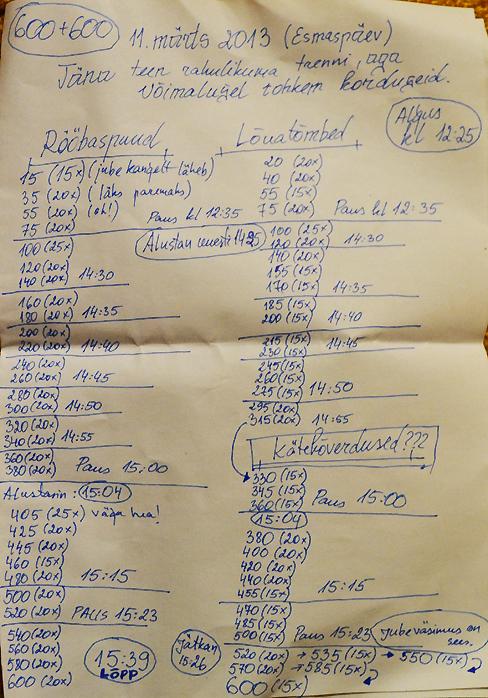 600+600
11. märts 2013 (Esmaspäev)
Täna teen rahulikuma trenni, aga
võimalusel rohkem korduseid.
Algus
kl 12:25
Rööbaspuud
15 (15x) (jube kangelt läheb)
35 (20x) (läks paremaks)
55 (20x) (oh!) Paus kl 12:35
75 (20x)
Alustan uuesti 14:25
100 (25x)
120 (20x)
140 (20x) 14:30
160 (20x)
180 (20x) 14:35
200 (20x)
220 (20x) 14:40
240 (20x)
260 (20x) 14:45
280 (20x)
300 (20x) 14:50
320 (20x)
340 (20x) 14:55
360 (20x)
380 (20x) Paus 15:00
Alustasin: 15:04
405 (25x) väga hea!
425 (20x)
445 (20x)
460 (15x)
480 (20x) 15:15
500 (20x)
520 (20x) PAUS 15:23
540 (20x)
560 (20x)
580 (20x)
600 (20x)
15:39
LÕPP
Lõuatõmbed
20 (20x)
40 (20x)
55 (15x)
75 (20x) Paus kl 12:35
100 (25x)
120 (20x) 14:30
140 (20x)
155 (15x)
170 (15x) 14:35
185 (15x)
200 (15x) 14:40
215 (15x) 14:45
230 (15x)
245 (15x)
260 (15x)
275 (15x) 14:50
295 (20x)
315 (20x) 14:55
Kätekõverdused???
330 (15x)
345 (15x)
360 (15x) Paus 15:00
15:04
380 (20x)
400 (20x)
420 (20x)
440 (20x)
455 (15x) 15:15
470 (15x)
485 (15x)
500 (15x) Paus 15:23
jube väsimus on
sees.
Jätkan
15:26
520 (20x) → 535 (15x) → 550 (15x)
570 (20x) → 585 (15x)
600 (15x)